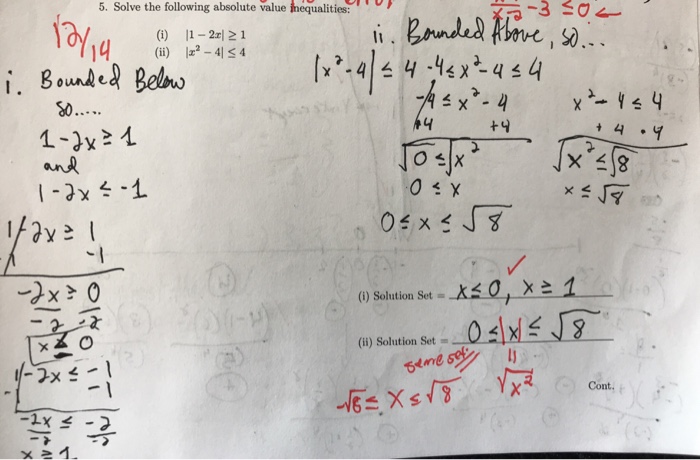 5. Solve the following absolute value inequalities:
(i) |1 − 2x| ≥ 1
(ii) |x² − 4| ≤ 4
12/14
-3 ≤ 0 ←
i. Bounded Below
so.....
1-2x ≥ 1
and
1-2x ≤ -1
1-2x ≥ 1
-1 -1
-2x ≥ 0
-2 -2
x ≤ 0
1-2x ≤ -1
-1 -1
-2x ≤ -2
-2 -2
x ≥ 1
ii. Bounded Above, so...
|x²-4| ≤ 4 -4 ≤ x²-4 ≤ 4
-4 ≤ x² - 4
+4 +4
√0 ≤ √x²
0 ≤ x
x² - 4 ≤ 4
+ 4 + 4
√x² ≤ √8
x ≤ √8
0 ≤ x ≤ √8
(i) Solution Set = x ≤ 0, x ≥ 1 ✓
(ii) Solution Set = 0 ≤ |x| ≤ √8
same set
-√8 ≤ x ≤ √8
√x²
Cont.